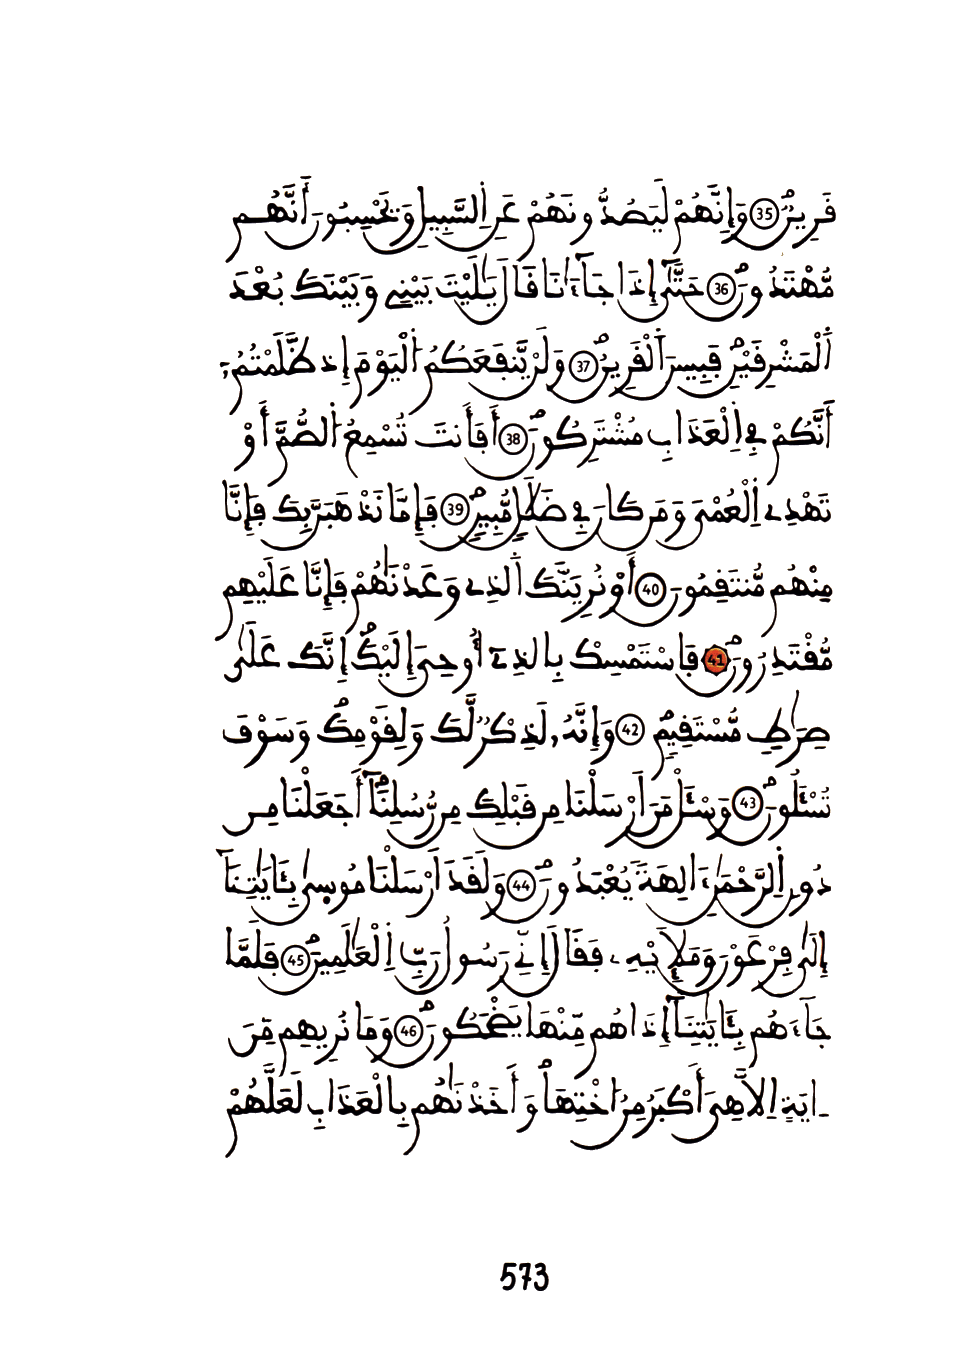 قَرِينٌ 35 وَإِنَّهُمْ لَيَصُدُّونَهُمْ عَنِ اِ۬لسَّبِيلِ وَيَحْسِبُونَ أَنَّهُم
مُّهْتَدُونَ 36 حَتَّىٰٓ إِذَا جَآءَٰنَا قَالَ يَٰلَيْتَ بَيْنِے وَبَيْنَكَ بُعْدَ
اَ۬لْمَشْرِقَيْنِ فَبِيسَ اَ۬لْقَرِينُ 37 وَلَنْ يَّنفَعَكُمُ اُ۬لْيَوْمَ إِذ ظَّلَمْتُمُۥٓ
أَنَّكُمْ فِے اِ۬لْعَذَابِ مُشْتَرِكُونَ 38 أَفَأَنتَ تُسْمِعُ اُ۬لصُّمَّ أَوْ
تَهْدِے اِ۬لْعُمْىَ وَمَن كَانَ فِے ضَلَٰلٍ مُّبِينٍ 39 فَإِمَّا نَذْهَبَنَّ بِكَ فَإِنَّا
مِنْهُم مُّنتَقِمُونَ 40 أَوْ نُرِيَنَّكَ اَ۬لذِے وَعَدْنَٰهُمْ فَإِنَّا عَلَيْهِم
مُّقْتَدِرُونَ 41 فَاسْتَمْسِكْ بِالذِےٓ أُوحِىَ إِلَيْكَ إِنَّكَ عَلَىٰ
صِرَٰطٍ مُّسْتَقِيمٍ 42 وَإِنَّهُۥ لَذِكْرٌ لَّكَ وَلِقَوْمِكَ وَسَوْفَ
تُسْـَٔلُونَ 43 وَسْـَٔلْ مَنَ اَرْسَلْنَا مِن قَبْلِكَ مِن رُّسُلِنَآ أَجَعَلْنَا مِن
دُونِ اِ۬لرَّحْمَٰنِ ءَالِهَةً يُعْبَدُونَ 44 وَلَقَدَ اَرْسَلْنَا مُوسىٰ بِـَٔايَٰتِنَآ
إِلَىٰ فِرْعَوْنَ وَمَلَإِيْهِۦ فَقَالَ إِنِّے رَسُولُ رَبِّ اِ۬لْعَٰلَمِينَ 45 فَلَمَّا
جَآءَهُم بِـَٔايَٰتِنَآ إِذَا هُم مِّنْهَا يَضْحَكُونَ 46 وَمَا نُرِيهِم مِّنَ
ـ ايَةٍ اِلَّا هِىَ أَكْبَرُ مِنُ ا۟خْتِهَا وَأَخَذْنَٰهُم بِالْعَذَابِ لَعَلَّهُمْ
573